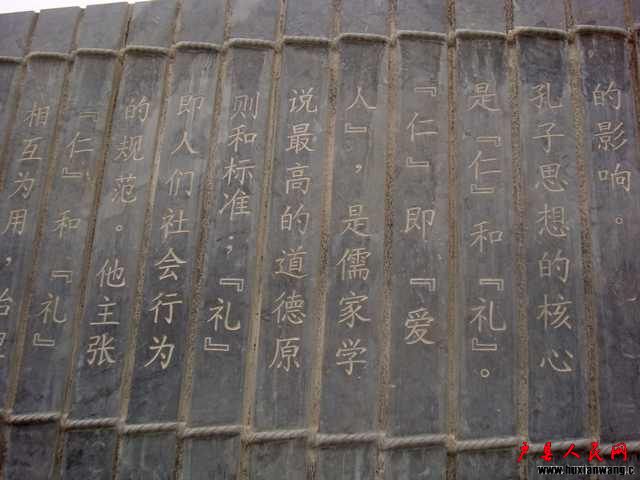 的影响。
孔子思想的核心
是『仁』和『礼』。
『仁』即『爱
人』，是儒家学
说最高的道德原
则和标准；『礼』
即人们社会行为
的规范。他主张
『仁』和『礼』
相互为用，治理
户县人民网
www.huxianwang.c